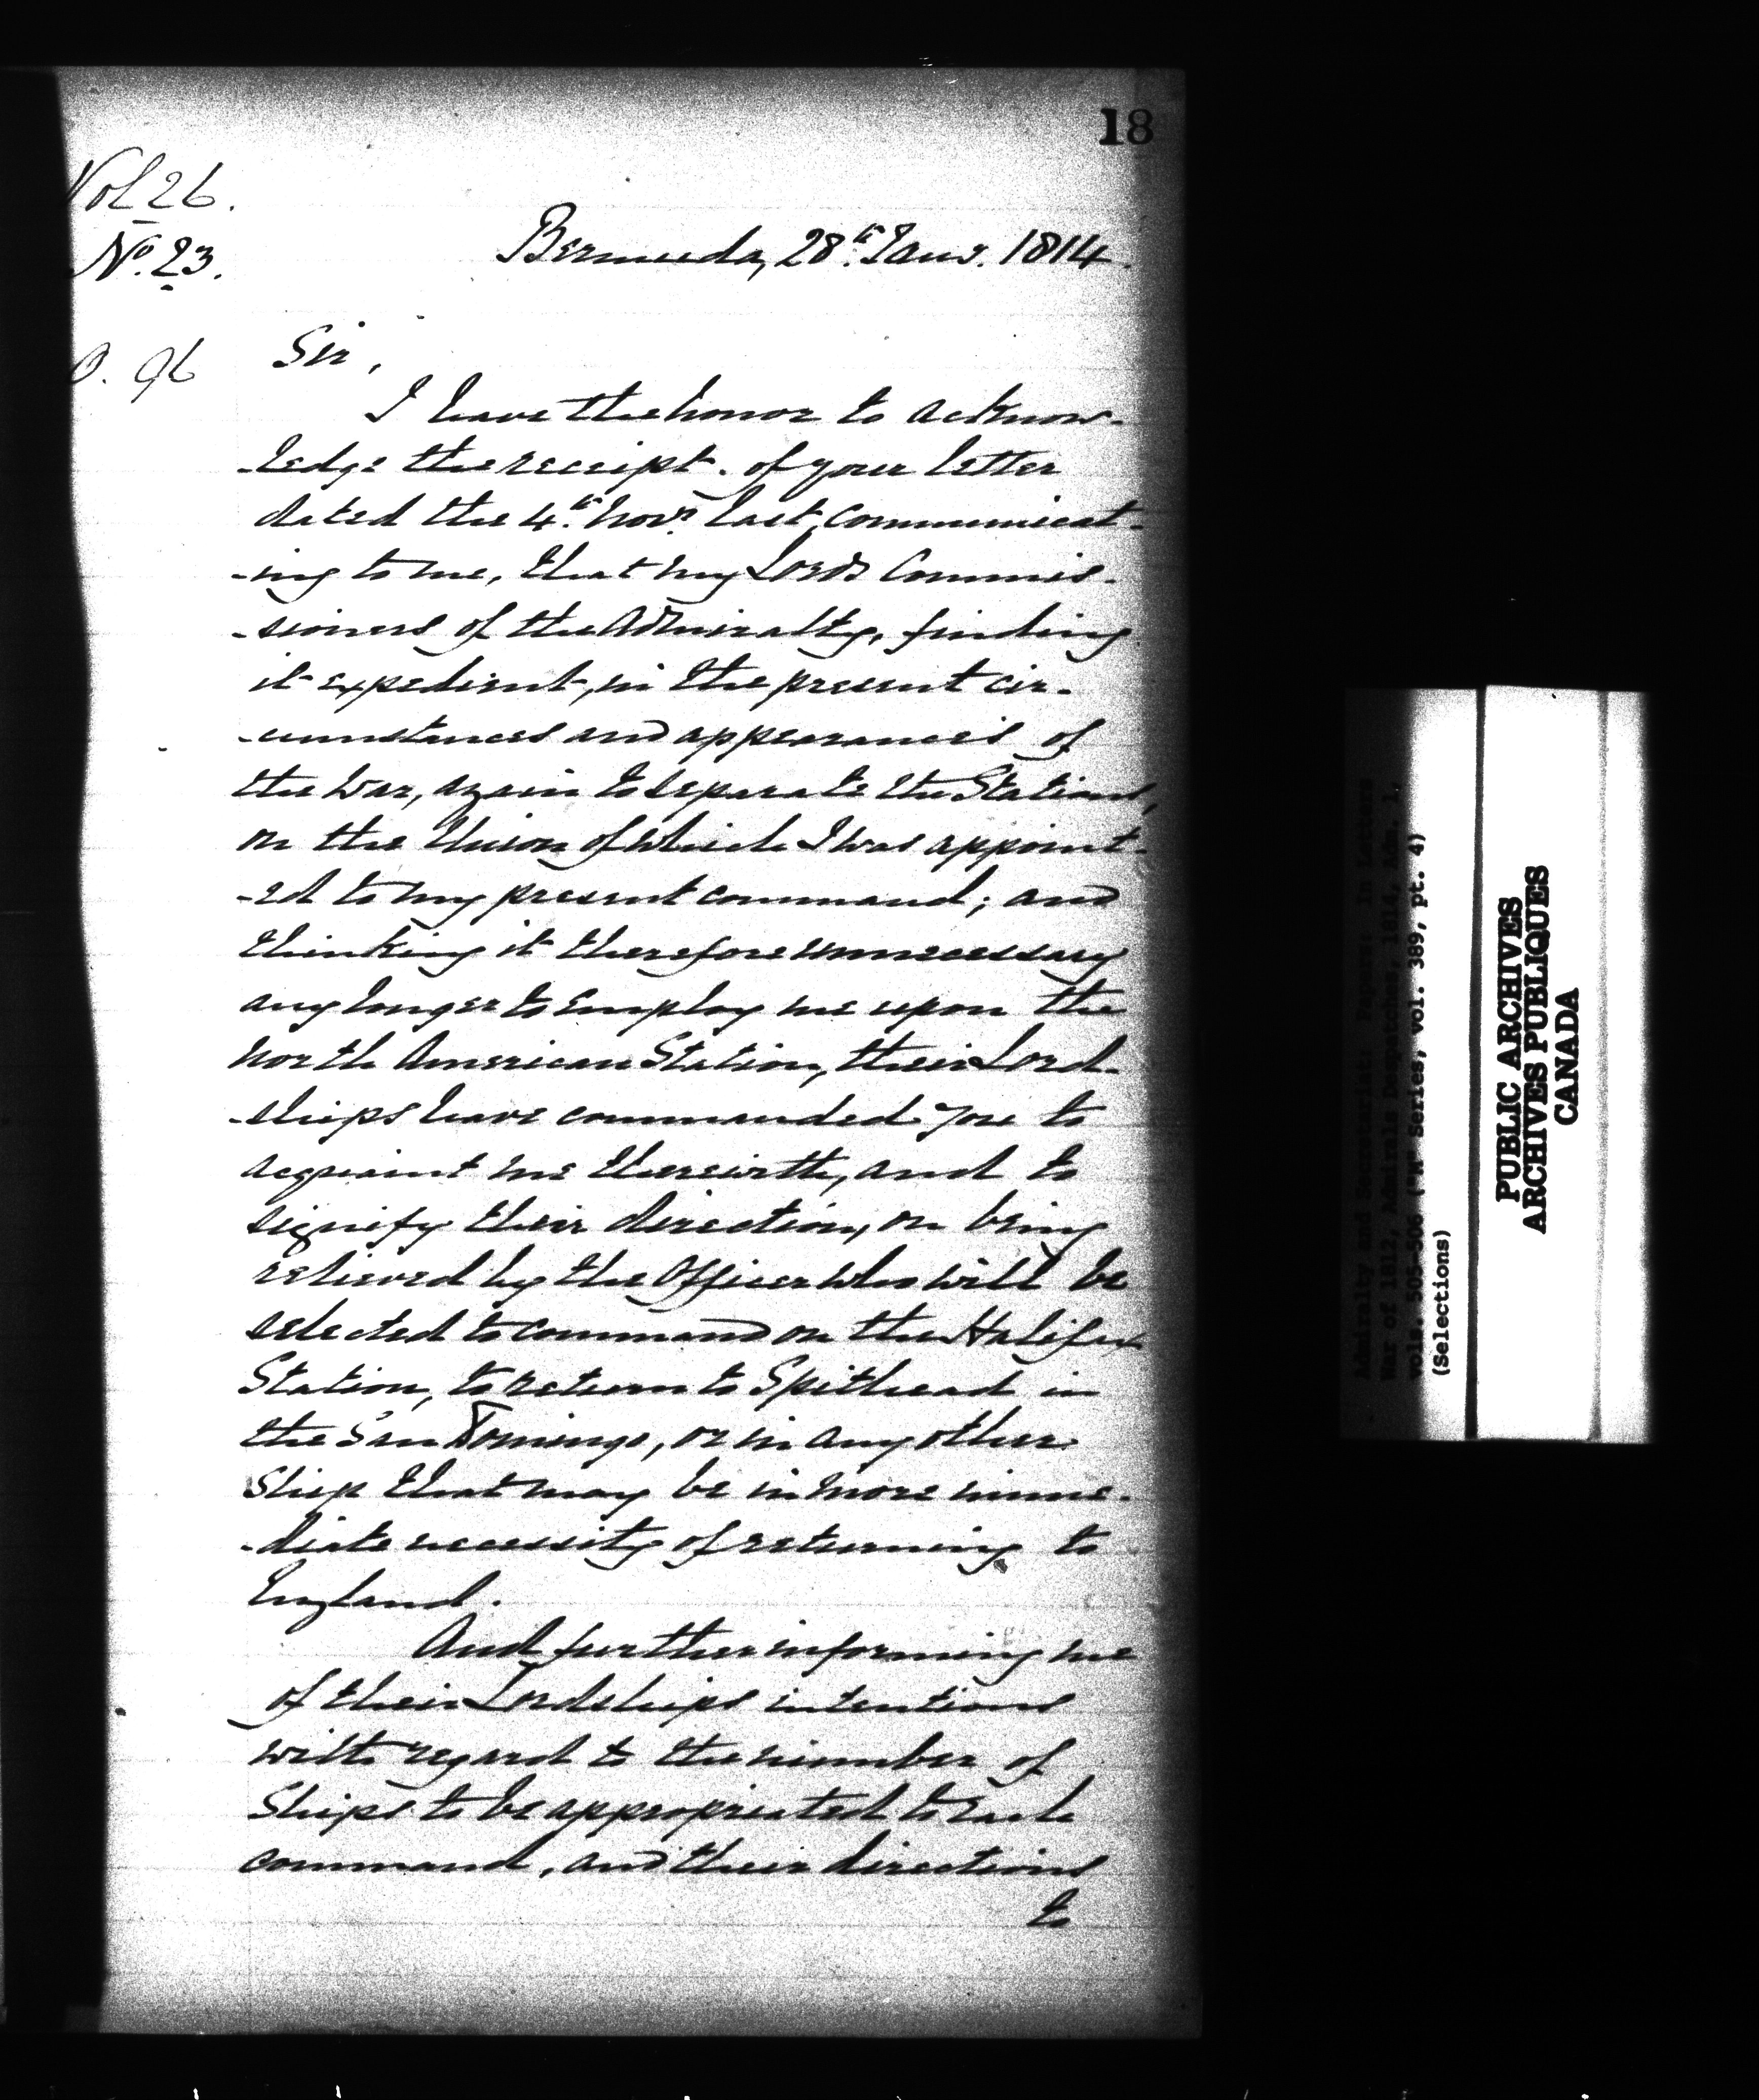 18
Vol 26.
No. 23.
Bermuda, 28th Jany. 1814.
O. 96
Sir,
I have the honor to acknow-
-ledge the receipt of your letter
dated the 4th Novr. last, communicat-
-ing to me, that my Lords Commis-
-sioners of the Admiralty, finding
it expedient, in the present cir-
-cumstances and appearances of
the War, again to separate the Stations,
on the Union of which I was appoint-
-ed to my present command; and
thinking it therefore unnecessary
any longer to employ me upon the
North American Station, their Lord-
-ships have commanded you to
acquaint me therewith, and to
signify their direction, on being
relieved by the Officer who will be
selected to command on the Halifax
Station, to return to Spithead in
the San Domingo, or in any other
Ship that may be in more imme-
-diate necessity of returning to
England.
And further informing me
of their Lordships intentions
with regard to the number of
Ships to be appropriated to each
command, and their directions
to
Admiralty and Secretariat: Papers: In Letters
War of 1812, Admirals Despatches, 1814, Adm. 1,
vols. 505-506 ("M" Series, vol. 389, pt. 4)
(Selections)
PUBLIC ARCHIVES
ARCHIVES PUBLIQUES
CANADA